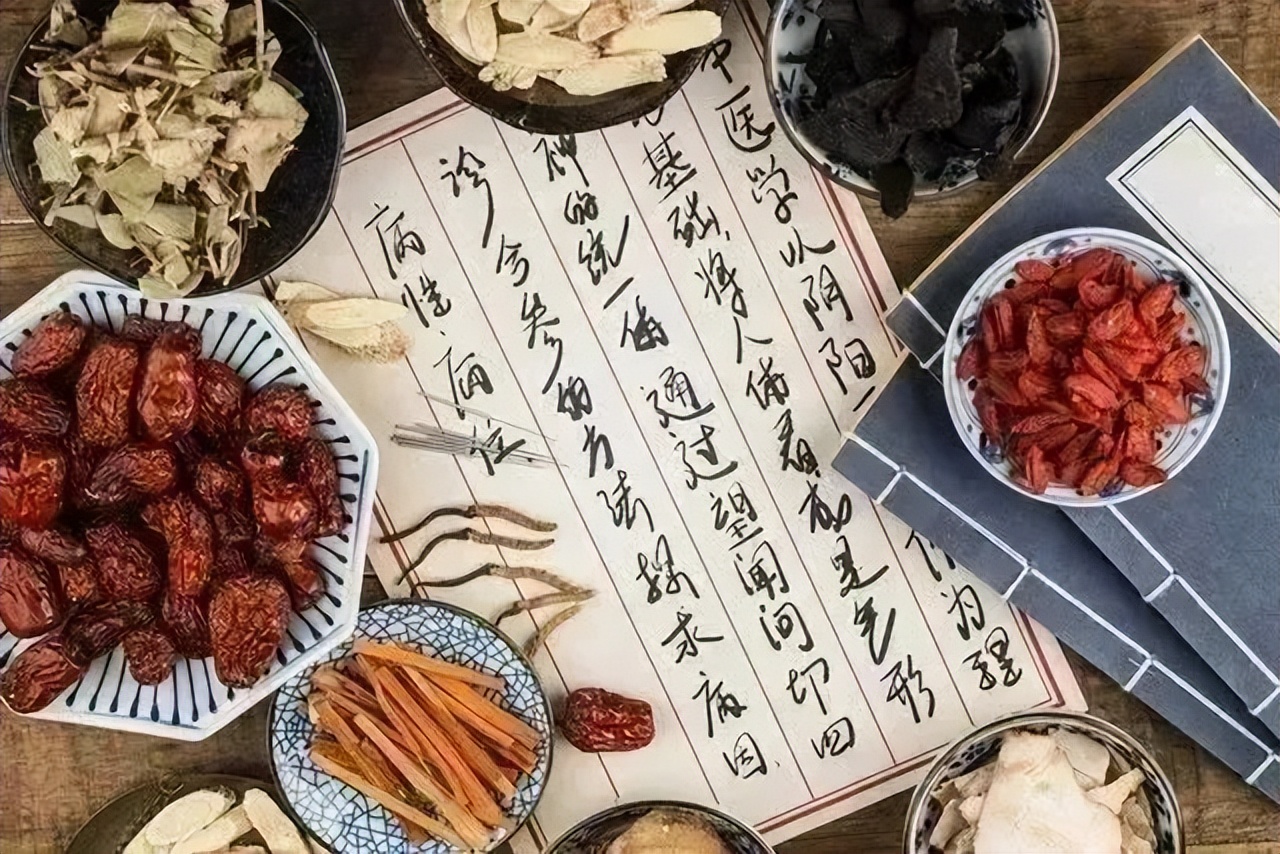 中医学以阴阳 为理
基础，将人体看成是气形
神的统一体 通过望闻问切四
诊合参的方法探求病因、
病性、病位